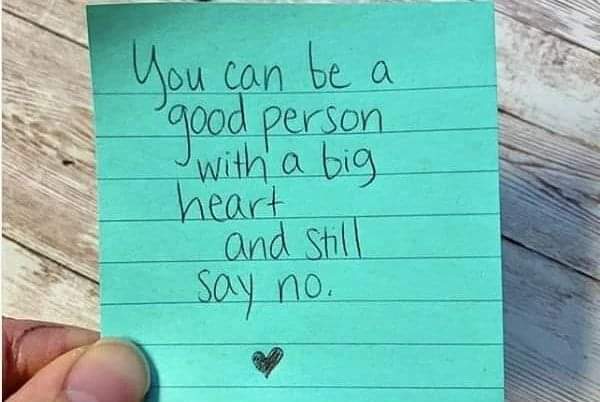 You can be a
good person
with a big
heart
and still
say no.